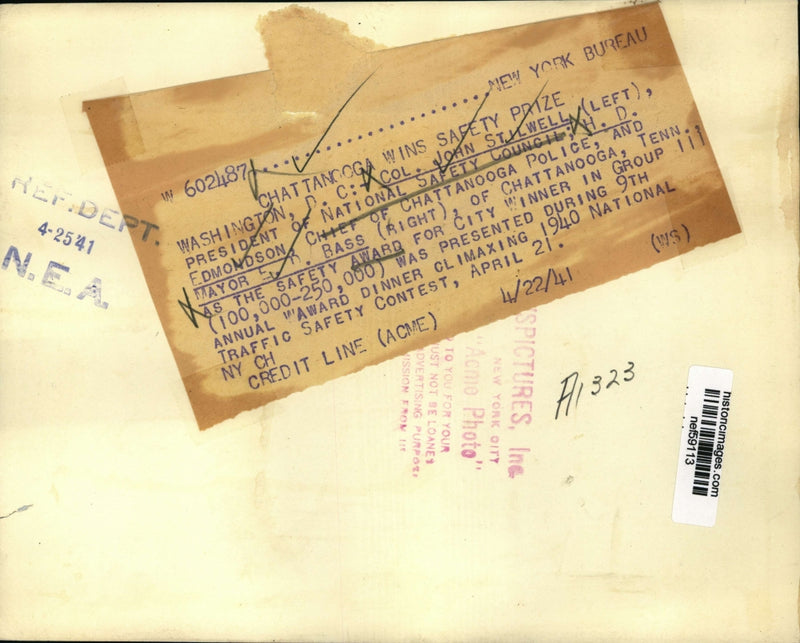 W 602487.......................NEW YORK BUREAU
CHATTANOOGA WINS SAFETY PRIZE
WASHINGTON, D.C.: COL. JOHN STILWELL (LEFT),
PRESIDENT OF NATIONAL SAFETY COUNCIL; H. D.
EDMONDSON, CHIEF OF CHATTANOOGA POLICE, AND
MAYOR E. R. BASS (RIGHT), OF CHATTANOOGA, TENN.,
AS THE SAFETY AWARD FOR CITY WINNER IN GROUP III
(100,000-250,000) WAS PRESENTED DURING 9TH
ANNUAL WAWARD DINNER CLIMAXING 1940 NATIONAL
TRAFFIC SAFETY CONTEST, APRIL 21.
NY CH
CREDIT LINE (ACME) 4/22/41 (WS)
REF. DEPT.
4-25 41
N.E.A.
SPICTURES, Inc.
NEW YORK CITY
"Acme Photo"
TO YOU FOR YOUR
UST NOT BE LOANED
DVERTISING PURPOSE
ISSION FROM
A1323
historicimages.com
nef59113